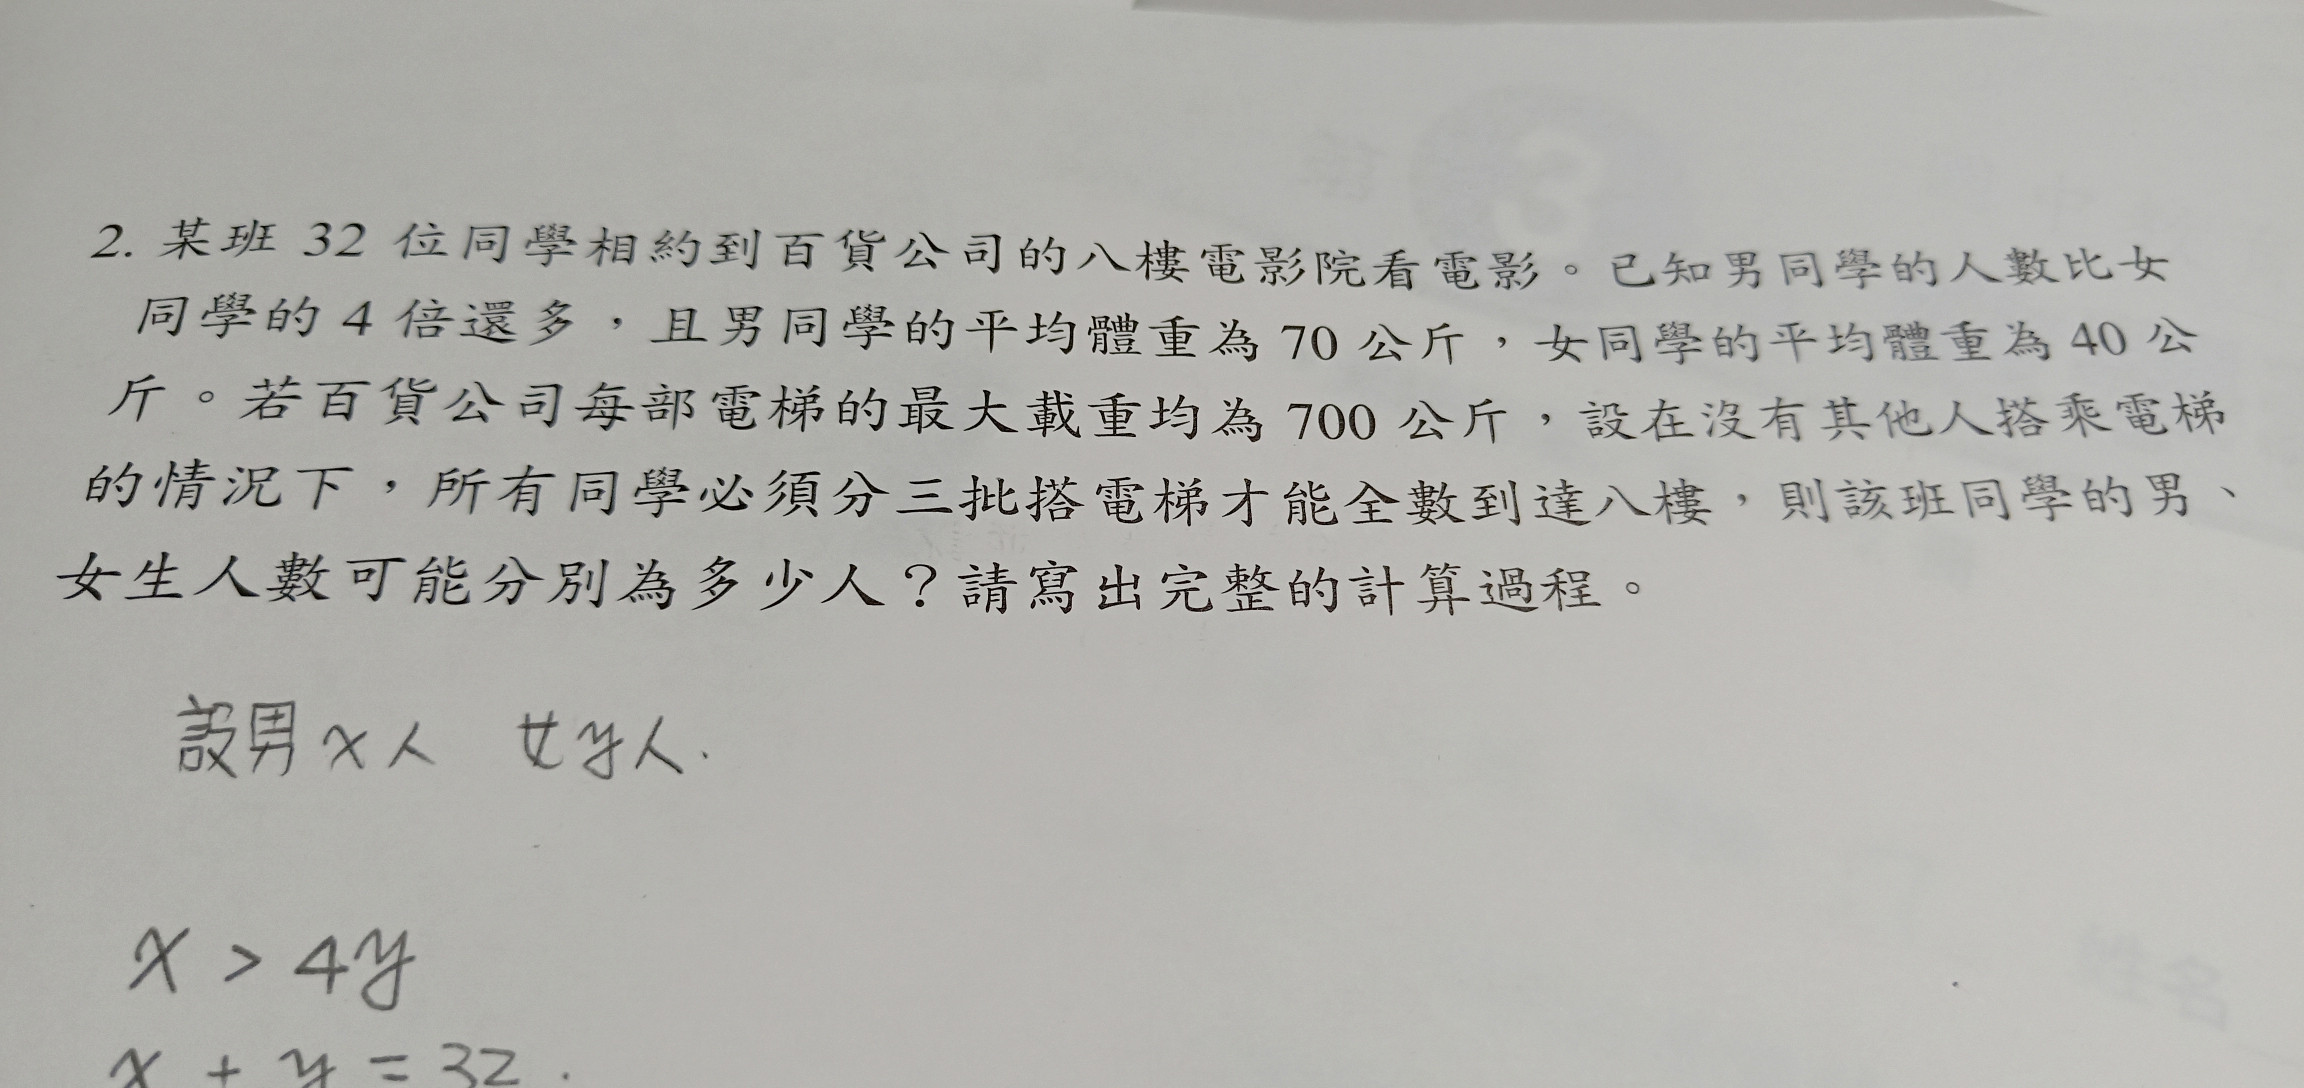 2. 某班 32 位同學相約到百貨公司的八樓電影院看電影。已知男同學的人數比女
同學的 4 倍還多，且男同學的平均體重為 70 公斤，女同學的平均體重為 40 公
斤。若百貨公司每部電梯的最大載重均為 700 公斤，設在沒有其他人搭乘電梯
的情況下，所有同學必須分三批搭電梯才能全數到達八樓，則該班同學的男、
女生人數可能分別為多少人？請寫出完整的計算過程。
設男 x 人 女 y 人.
x > 4y
x + y = 32.